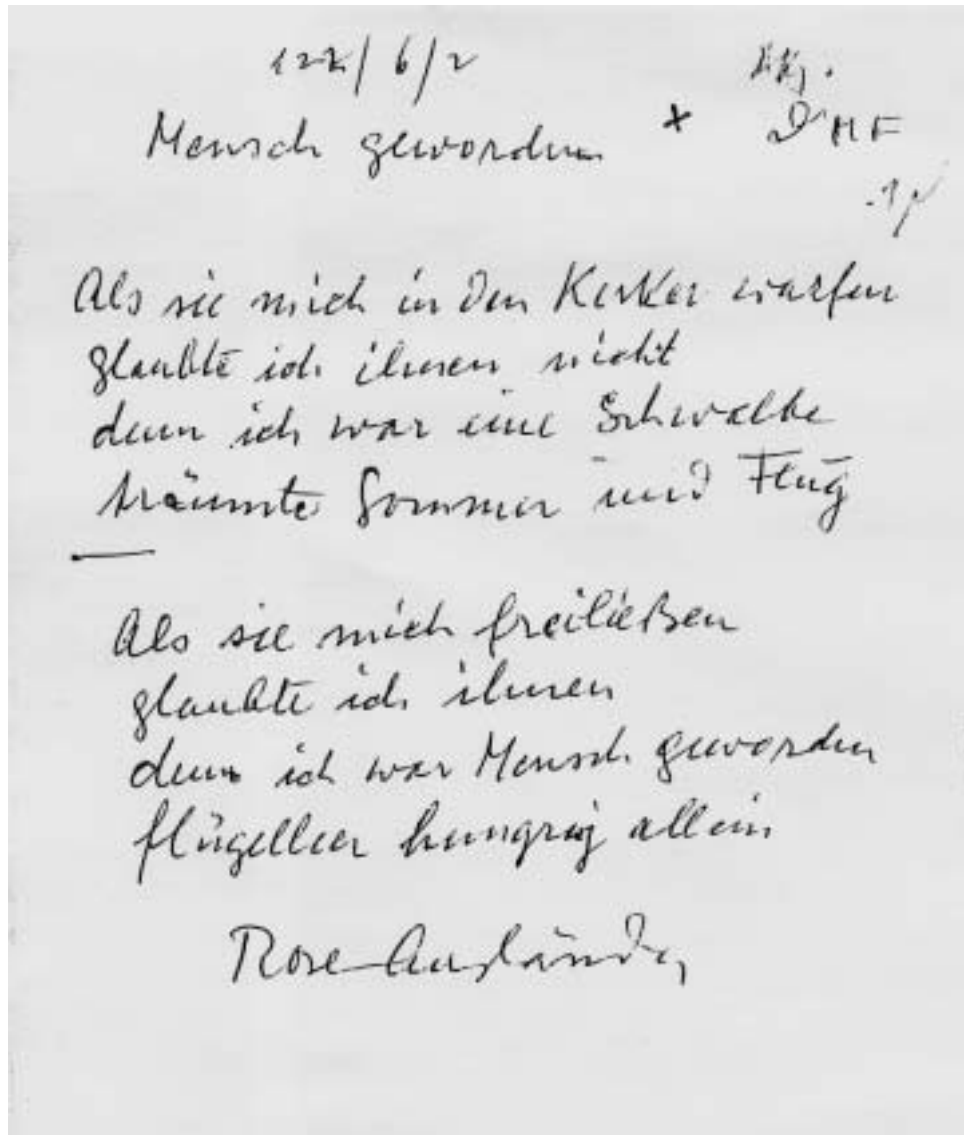 122/6/2
Mensch geworden × DMF
Als sie mich in den Kerker warfen
glaubte ich ihnen nicht
denn ich war eine Schwalbe
träumte Sommer und Flug
Als sie mich freiließen
glaubte ich ihnen
denn ich war Mensch geworden
flügelleer hungrig allein
Rose Ausländer